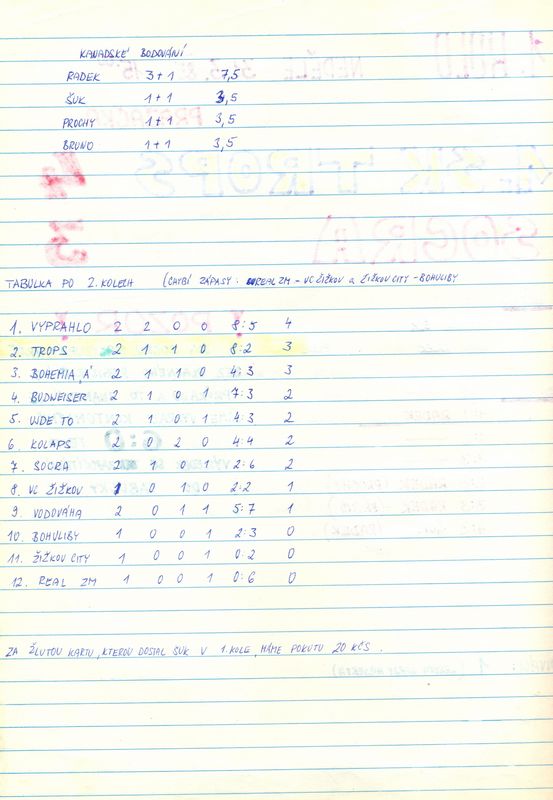 KANADSKÉ BODOVÁNÍ
RADEK 3+1 7,5
ŠUK 1+1 3,5
PROCHY 1+1 3,5
BRUNO 1+1 3,5
TABULKA PO 2. KOLECH (CHYBÍ ZÁPASY: REAL ZM - VC ŽIŽKOV a ŽIŽKOV CITY - BOHULIBY
1. VYPRAHLO 2 2 0 0 8:5 4
2. TROPS 2 1 1 0 8:2 3
3. BOHEMIA "A" 2 1 1 0 4:3 3
4. BUDWEISER 2 1 0 1 7:3 2
5. UDE TO 2 1 0 1 4:3 2
6. KOLAPS 2 0 2 0 4:4 2
7. SOCRA 2 1 0 1 2:6 2
8. VC ŽIŽKOV 1 0 1 0 2:2 1
9. VODOVÁHA 2 0 1 1 5:7 1
10. BOHULIBY 1 0 0 1 2:3 0
11. ŽIŽKOV CITY 1 0 0 1 0:2 0
12. REAL ZM 1 0 0 1 0:6 0
ZA ŽLUTOU KARTU, KTEROU DOSTAL ŠUK V 1. KOLE, MÁME POKUTU 20 KČS.